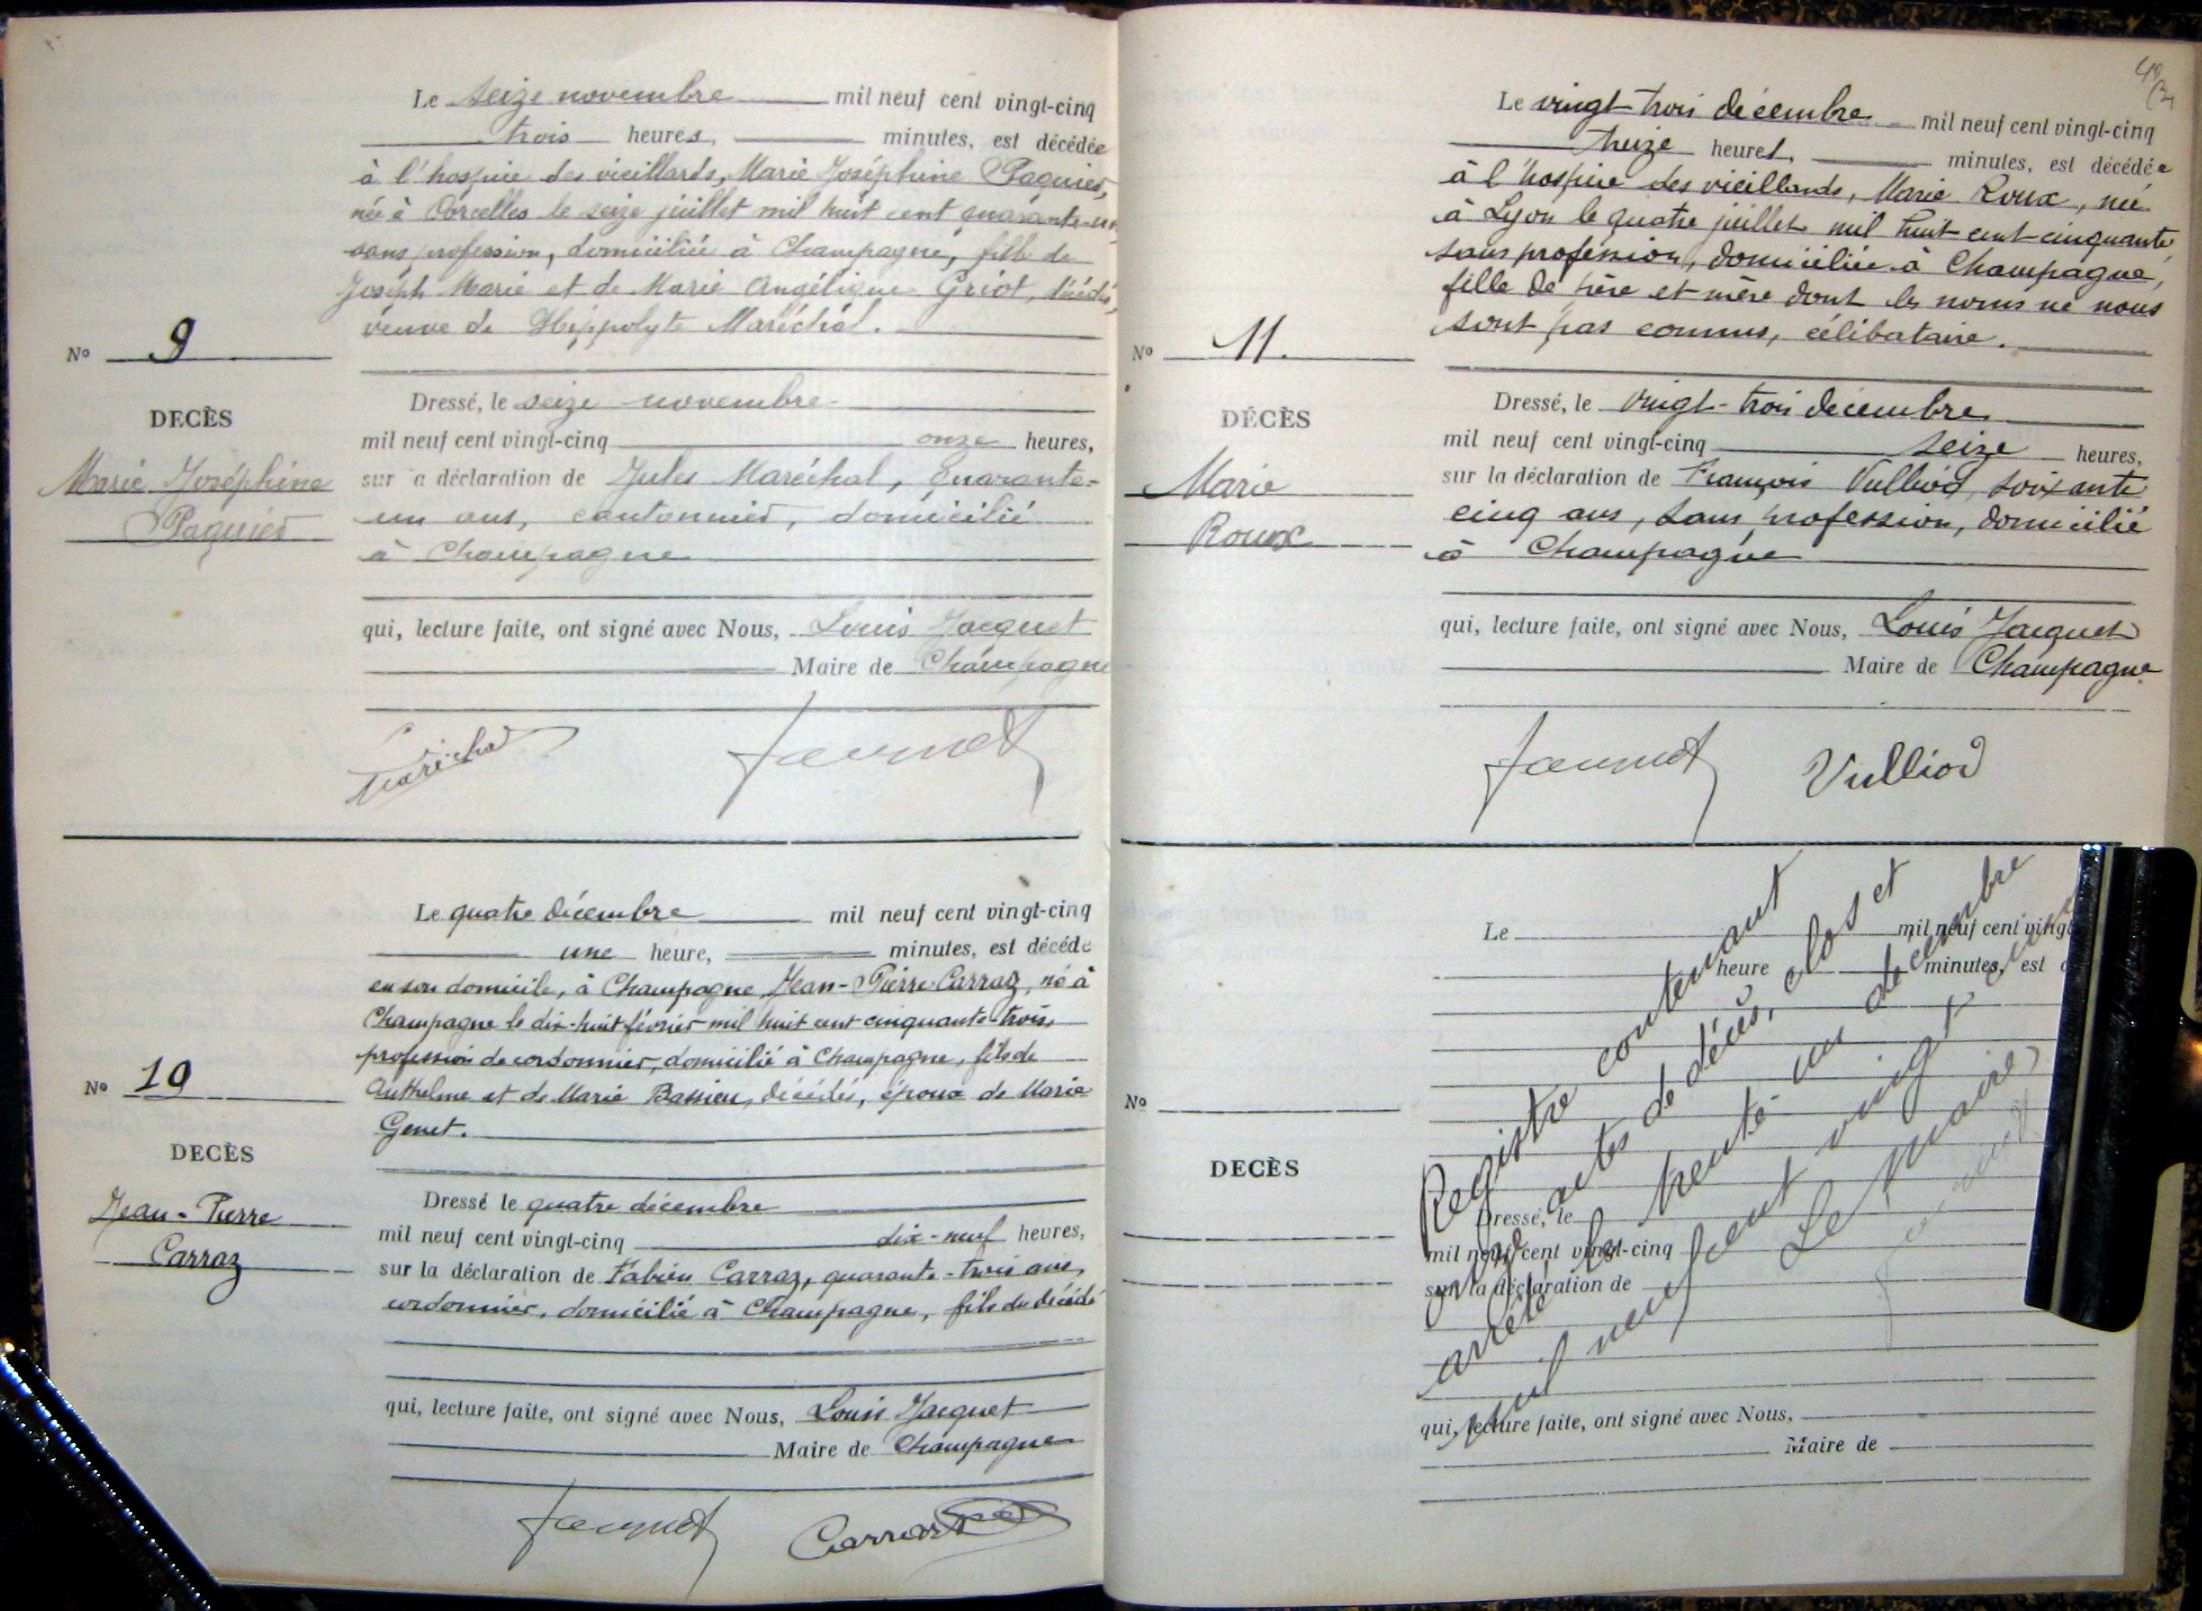 Le seize novembre mil neuf cent vingt-cinq
trois heures, minutes, est décédée
à l'hospice des vieillards, Marie Joséphine Paquier,
née à Corcelles le seize juillet mil huit cent quarante-un
sans profession, domiciliée à Champagne, fille de
Joseph Marie et de Marie Angélique Griot, décédés,
veuve de Hippolyte Maréchal.
No 9
DECÈS
Marie Joséphine
Paquier
Dressé, le seize novembre
mil neuf cent vingt-cinq onze heures,
sur a déclaration de Jules Maréchal, quarante-
un ans, cantonnier, domicilié
à Champagne
qui, lecture faite, ont signé avec Nous, Louis Jacquet
Maire de Champagne
Maréchal Jacquet
Le quatre décembre mil neuf cent vingt-cinq
une heure, minutes, est décédé
en son domicile, à Champagne Jean-Pierre Carraz, né à
Champagne le dix-huit février mil huit cent cinquante-trois,
profession de cordonnier, domicilié à Champagne, fils de
Anthelme et de Marie Bassieu, décédés, époux de Marie
Genet.
No 10
DECÈS
Jean-Pierre
Carraz
Dressé le quatre décembre
mil neuf cent vingt-cinq dix-neuf heures,
sur la déclaration de Fabien Carraz, quarante-trois ans,
cordonnier, domicilié à Champagne, fils du décédé
qui, lecture faite, ont signé avec Nous, Louis Jacquet
Maire de Champagne
Jacquet Carraz
Le vingt-trois décembre mil neuf cent vingt-cinq
treize heures, minutes, est décédée
à l'hospice des vieillards, Marie Roux, née
à Lyon le quatre juillet mil huit cent cinquante
sans profession, domiciliée à Champagne,
fille de père et mère dont les noms ne nous
sont pas connus, célibataire.
No 11.
DÉCÈS
Marie
Roux
Dressé, le vingt-trois décembre
mil neuf cent vingt-cinq seize heures,
sur la déclaration de François Vulliod, soixante
cinq ans, sans profession, domicilié
à Champagne
qui, lecture faite, ont signé avec Nous, Louis Jacquet
Maire de Champagne
Jacquet Vulliod
Le mil neuf cent vingt
heure minutes, est
No
DECÈS
Dressé, le
mil neuf cent vingt-cinq
sur la déclaration de
qui, lecture faite, ont signé avec Nous,
Maire de
Registre contenant
onze actes de décès, clos et
arrêté le trente-un décembre
mil neuf cent vingt
Le Maire,